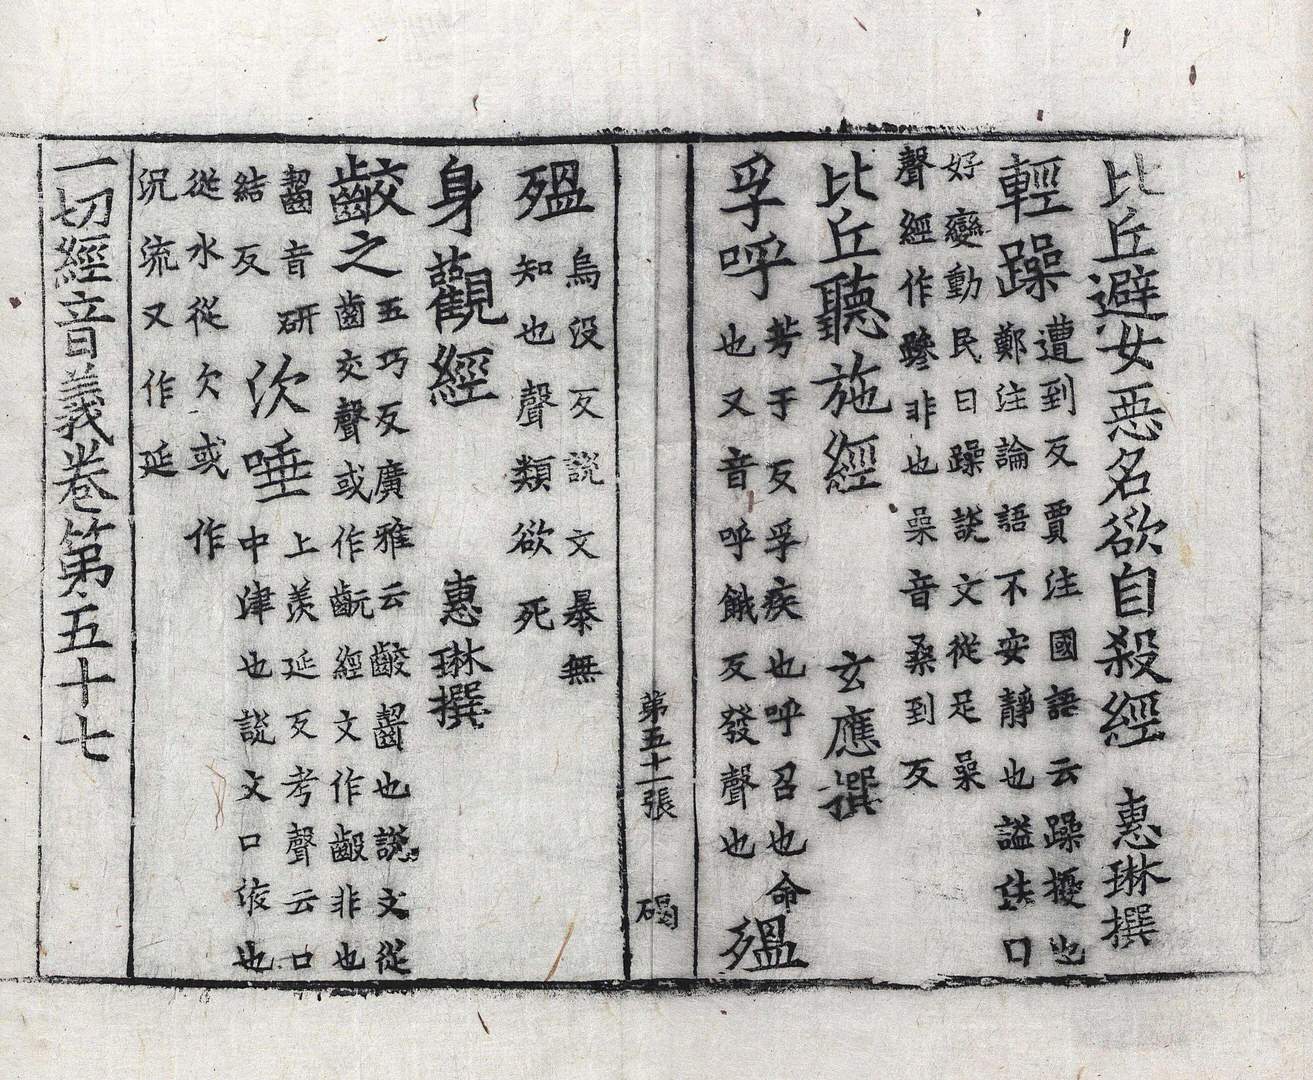 比丘避女惡名欲自殺經 惠琳撰
輕躁 遭到反賈注國語云躁擾也
鄭注論語不安靜也謚法口
好變動民曰躁説文從足喿
聲經作躁非也喿音桑到反
比丘聽施經 玄應撰
孚呼 芳于反孚疾也呼召也命
也又音呼餓反發聲也 殟
殟 烏没反説文暴無
知也聲類欲死
身觀經 惠琳撰
齩之 五巧反廣雅云齩齧也説文從
齒交聲或作䶧經文作齩非也
齧音研
結反
㳄唾 上羨延反考聲云口
中津也説文口液也
從水從欠或作
況流又作延
一切經音義卷第五十七
第五十一張 碣